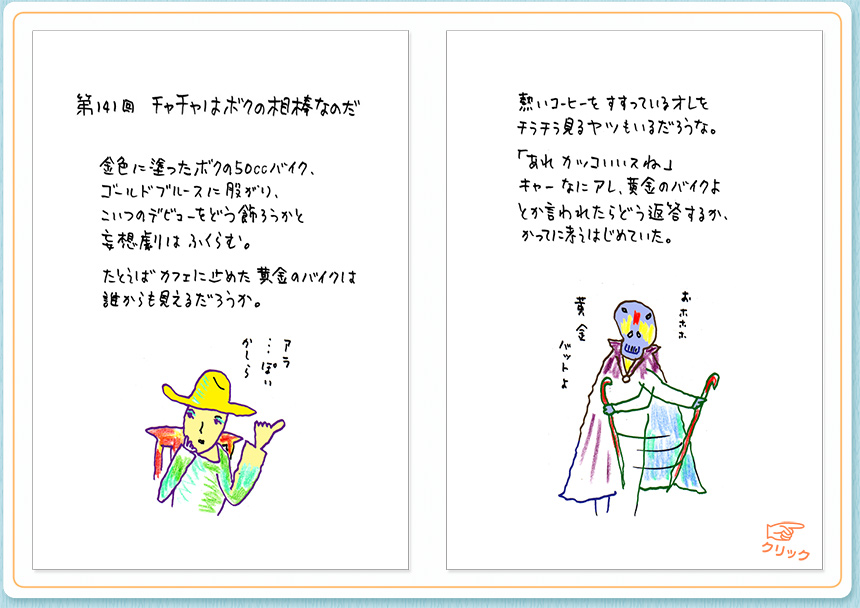 第141回 チャチャはボクの相棒なのだ
金色に塗ったボクの50ccバイク、
ゴールドブルースに股がり、
こいつのデビューをどう飾ろうかと
妄想劇は ふくらむ。
たとえば カフェに止めた 黄金のバイクは
誰からも見えるだろうか。
アラ
…ぽい
かしら
熱いコーヒーを すすっているオレを
チラチラ見るヤツもいるだろうな。
「あれ カッコいいスね」
キャー なに アレ、黄金のバイクよ
とか言われたらどう返答するか、
かってに考えはじめていた。
おホホホ
黄金
バットよ
クリック